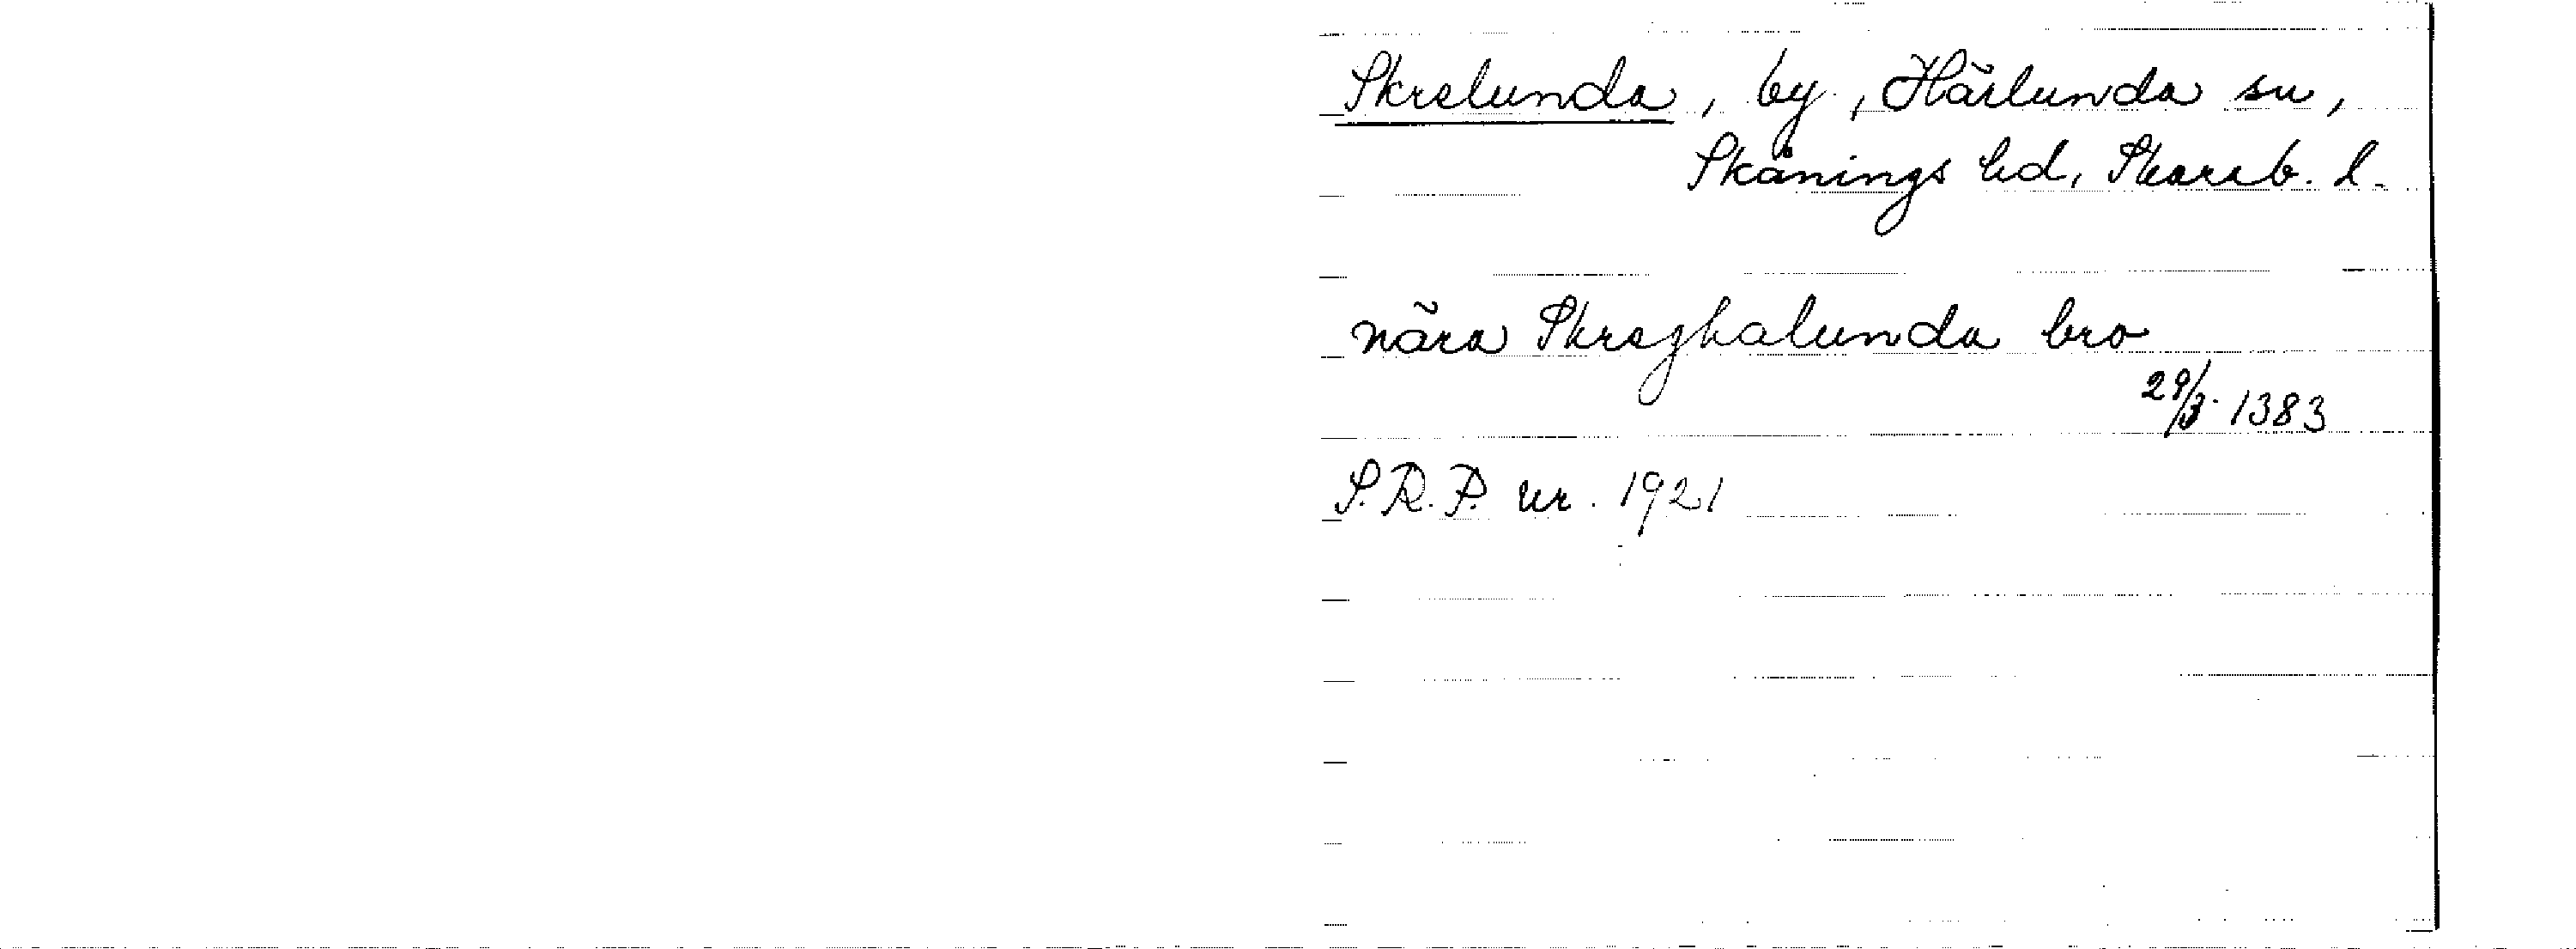 Skrelunda, by, Härlunda sn,
Skånings hd, Skarab. l.
nära Skreghalunda bro
29/3 1383
S.R.P. nr. 1921